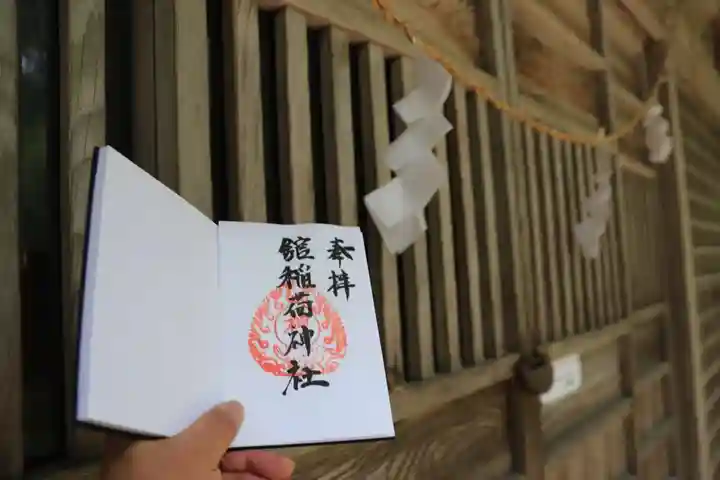 奉拝
舘稲荷神社